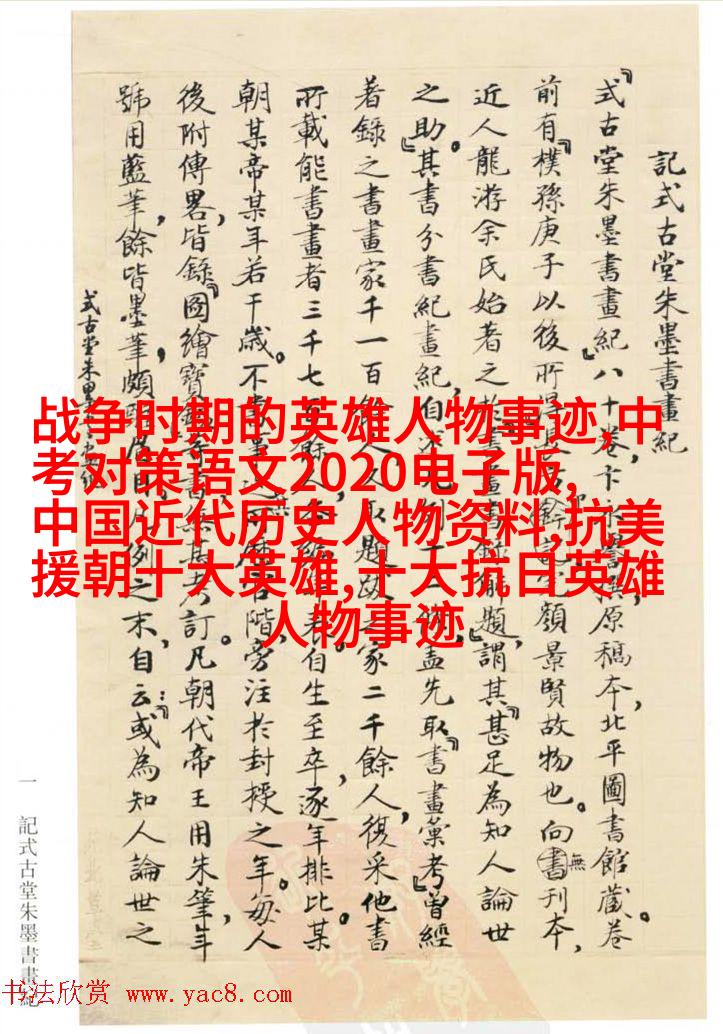 記式古堂朱墨書畫紀
『式古堂朱墨書畫紀』八十卷,卞永譽撰,原稿本,北平圖書館藏。卷
前有『樸孫庚子以後所得』顏景賢故物也。向無刊本,
近人龍游余氏始著之於書畫書錄解題,謂其『甚足為知人論世
之助。』其書分書紀畫紀,自述凡例十蓋先取『書畫彙考』曾經
著錄之書畫家千一百餘人,又取題跋之家二千餘人,復采他書
所載能書畫者三千七百餘人,表自生至卒,逐年排比,某
朝某帝某年若干歲。不官階,旁注於封授之年。每人
後附傳畧,皆錄『圖繪寶鑑』訂。凡朝代帝王用朱筆,年
號用藍筆,餘皆墨筆,頗凡例之末,自云:『或為知人論世之
式古堂朱墨
一 記式古堂朱墨書畫紀
战争时期的英雄人物事迹,中
考对策语文2020电子版,
中国近代历史人物资料,抗美
援朝十大英雄,十大抗日英雄
人物事迹
书法欣赏 www.yac8.com